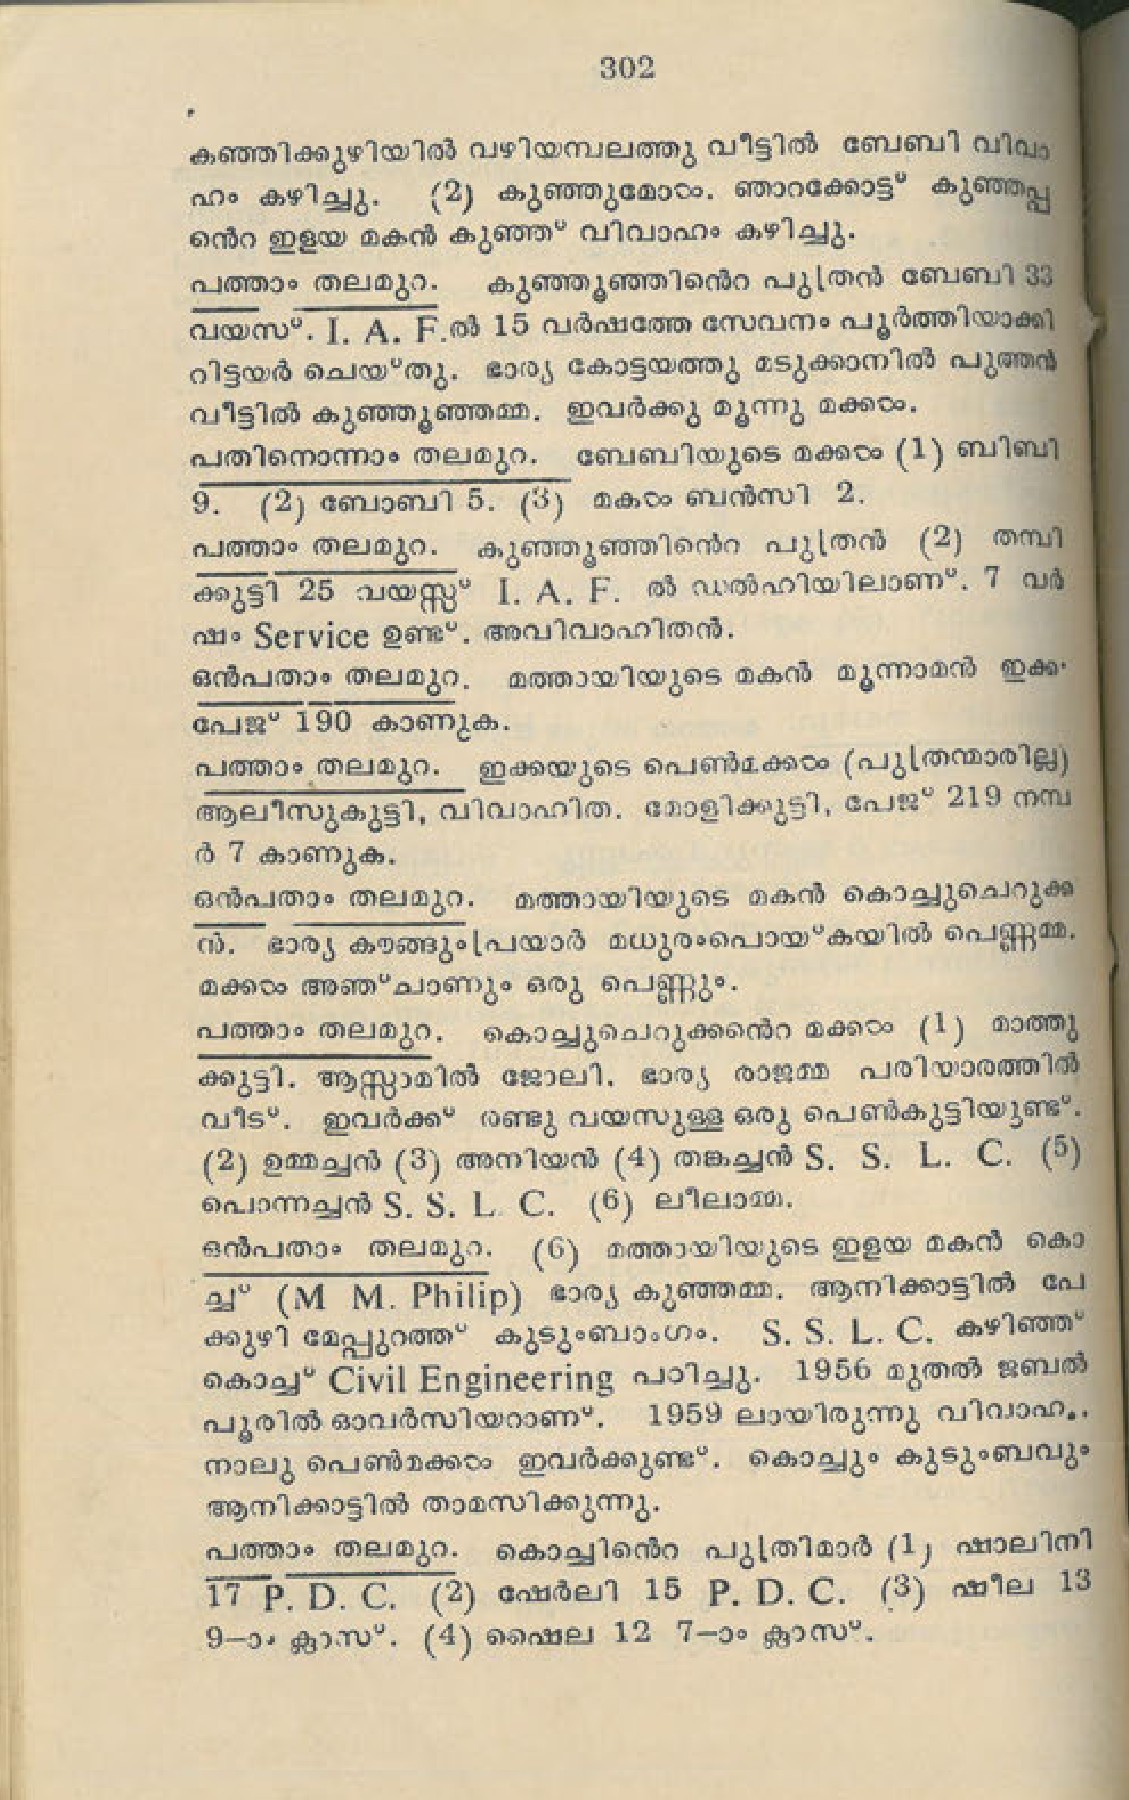 302
കഞ്ഞിക്കുഴിയിൽ വഴിയമ്പലത്തു വീട്ടിൽ ബേബി വിവാ
ഹം കഴിച്ചു. (2) കുഞ്ഞുമോൾ. ഞാറക്കോട്ട് കുഞ്ഞപ്പ
ൻെറ ഇളയ മകൻ കുഞ്ഞ് വിവാഹം കഴിച്ചു.
പത്താം തലമുറ. കുഞ്ഞൂഞ്ഞിൻെറ പുത്രൻ ബേബി 33
വയസ്. I. A. F.ൽ 15 വർഷത്തേ സേവനം പൂർത്തിയാക്കി
റിട്ടയർ ചെയ്തു. ഭാര്യ കോട്ടയത്തു മടുക്കാനിൽ പുത്തൻ
വീട്ടിൽ കുഞ്ഞൂഞ്ഞമ്മ. ഇവർക്കു മൂന്നു മക്കൾ.
പതിനൊന്നാം തലമുറ. ബേബിയുടെ മക്കൾ (1) ബിബി
9. (2) ബോബി 5. (3) മകൾ ബൻസി 2.
പത്താം തലമുറ. കുഞ്ഞൂഞ്ഞിൻെറ പുത്രൻ (2) തമ്പി
ക്കുട്ടി 25 വയസ്സ് I. A. F. ൽ ഡൽഹിയിലാണ്. 7 വർ
ഷം Service ഉണ്ട്. അവിവാഹിതൻ.
ഒൻപതാം തലമുറ. മത്തായിയുടെ മകൻ മൂന്നാമൻ ഇക്ക·
പേജ് 190 കാണുക.
പത്താം തലമുറ. ഇക്കയുടെ പെൺമക്കൾ (പുത്രന്മാരില്ല)
ആലീസുകുട്ടി, വിവാഹിത. മോളിക്കുട്ടി, പേജ് 219 നമ്പ
ർ 7 കാണുക.
ഒൻപതാം തലമുറ. മത്തായിയുടെ മകൻ കൊച്ചുചെറുക്ക
ൻ. ഭാര്യ കൗങ്ങുംപ്രയാർ മധുരംപൊയ്കയിൽ പെണ്ണമ്മ.
മക്കൾ അഞ്ചാണും ഒരു പെണ്ണും.
പത്താം തലമുറ. കൊച്ചുചെറുക്കൻെറ മക്കൾ (1) മാത്തു
ക്കുട്ടി. ആസ്സാമിൽ ജോലി. ഭാര്യ രാജമ്മ പരിയാരത്തിൽ
വീട്. ഇവർക്ക് രണ്ടു വയസുള്ള ഒരു പെൺകുട്ടിയുണ്ട്.
(2) ഉമ്മച്ചൻ (3) അനിയൻ (4) തങ്കച്ചൻ S. S. L. C. (5)
പൊന്നച്ചൻ S. S. L. C. (6) ലീലാമ്മ.
ഒൻപതാം തലമുറ. (6) മത്തായിയുടെ ഇളയ മകൻ കൊ
ച്ച് (M M. Philip) ഭാര്യ കുഞ്ഞമ്മ. ആനിക്കാട്ടിൽ പേ
ക്കുഴി മേപ്പുറത്ത് കുടുംബാംഗം. S. S. L. C. കഴിഞ്ഞ്
കൊച്ച് Civil Engineering പഠിച്ചു. 1956 മുതൽ ജബൽ
പൂരിൽ ഓവർസിയറാണ്. 1959 ലായിരുന്നു വിവാഹം.
നാലു പെൺമക്കൾ ഇവർക്കുണ്ട്. കൊച്ചും കുടുംബവും
ആനിക്കാട്ടിൽ താമസിക്കുന്നു.
പത്താം തലമുറ. കൊച്ചിൻെറ പുത്രിമാർ (1) ഷാലിനി
17 P. D. C. (2) ഷേർലി 15 P. D. C. (3) ഷീല 13
9–ാം ക്ലാസ്. (4) ഷൈല 12 7–ാം ക്ലാസ്.